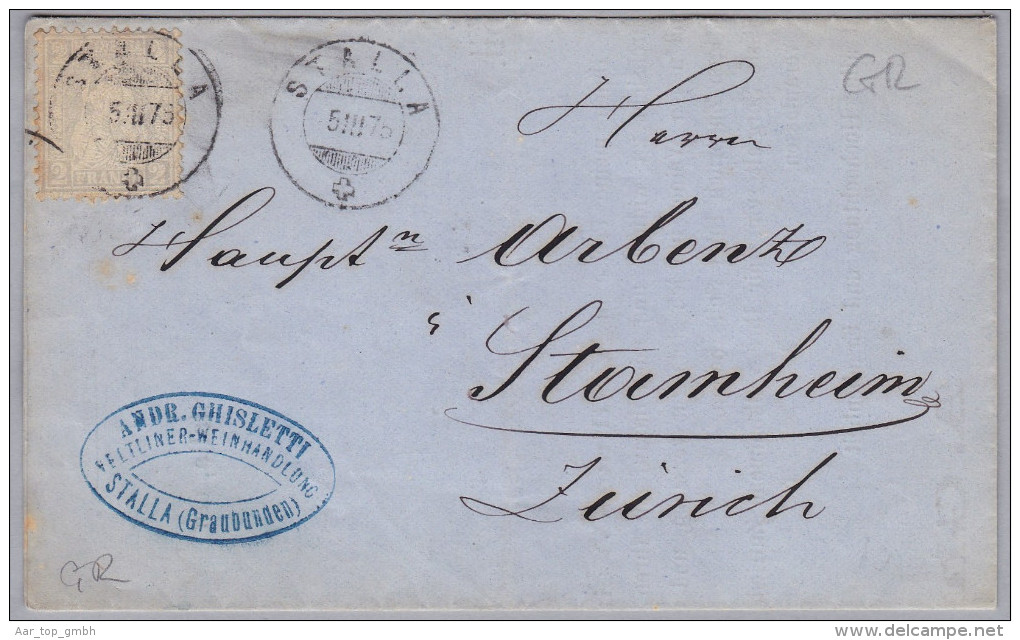 STALLA
5 III 75
2 FRANCO 2
STALLA
5 III 75
GR
Herrn
Hauptn Arbenz
Stamheim
Zürich
ANDR. GHISLETTI
VELTLINER-WEINHANDLUNG
STALLA (Graubünden)
GR
Aar_top_gmbh
delcampe.net